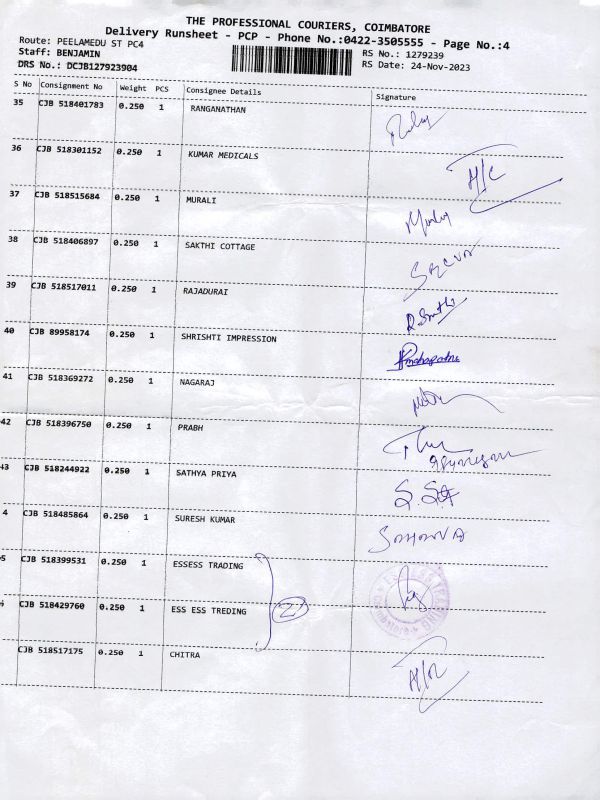 THE PROFESSIONAL COURIERS, COIMBATORE
Delivery Runsheet - PCP - Phone No.:0422-3505555 - Page No.:4
Route: PEELAMEDU ST PC4
RS No.: 1279239
Staff: BENJAMIN
RS Date: 24-Nov-2023
DRS No.: DCJB127923904
S No Consignment No Weight PCS Consignee Details Signature
35 CJB 518401783 0.250 1 RANGANATHAN
36 CJB 518301152 0.250 1 KUMAR MEDICALS A/C
37 CJB 518515684 0.250 1 MURALI
38 CJB 518406897 0.250 1 SAKTHI COTTAGE
39 CJB 518517011 0.250 1 RAJADURAI
40 CJB 89958174 0.250 1 SHRISHTI IMPRESSION
41 CJB 518369272 0.250 1 NAGARAJ
42 CJB 518396750 0.250 1 PRABH
43 CJB 518244922 0.250 1 SATHYA PRIYA
4 CJB 518485864 0.250 1 SURESH KUMAR
5 CJB 518399531 0.250 1 ESSESS TRADING
CJB 518429760 0.250 1 ESS ESS TREDING 2
CJB 518517175 0.250 1 CHITRA